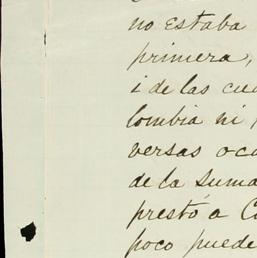 no estaba
primera,
i de las cu
lombia ni
versas oca
de la suma
prestó a Co
poco puede